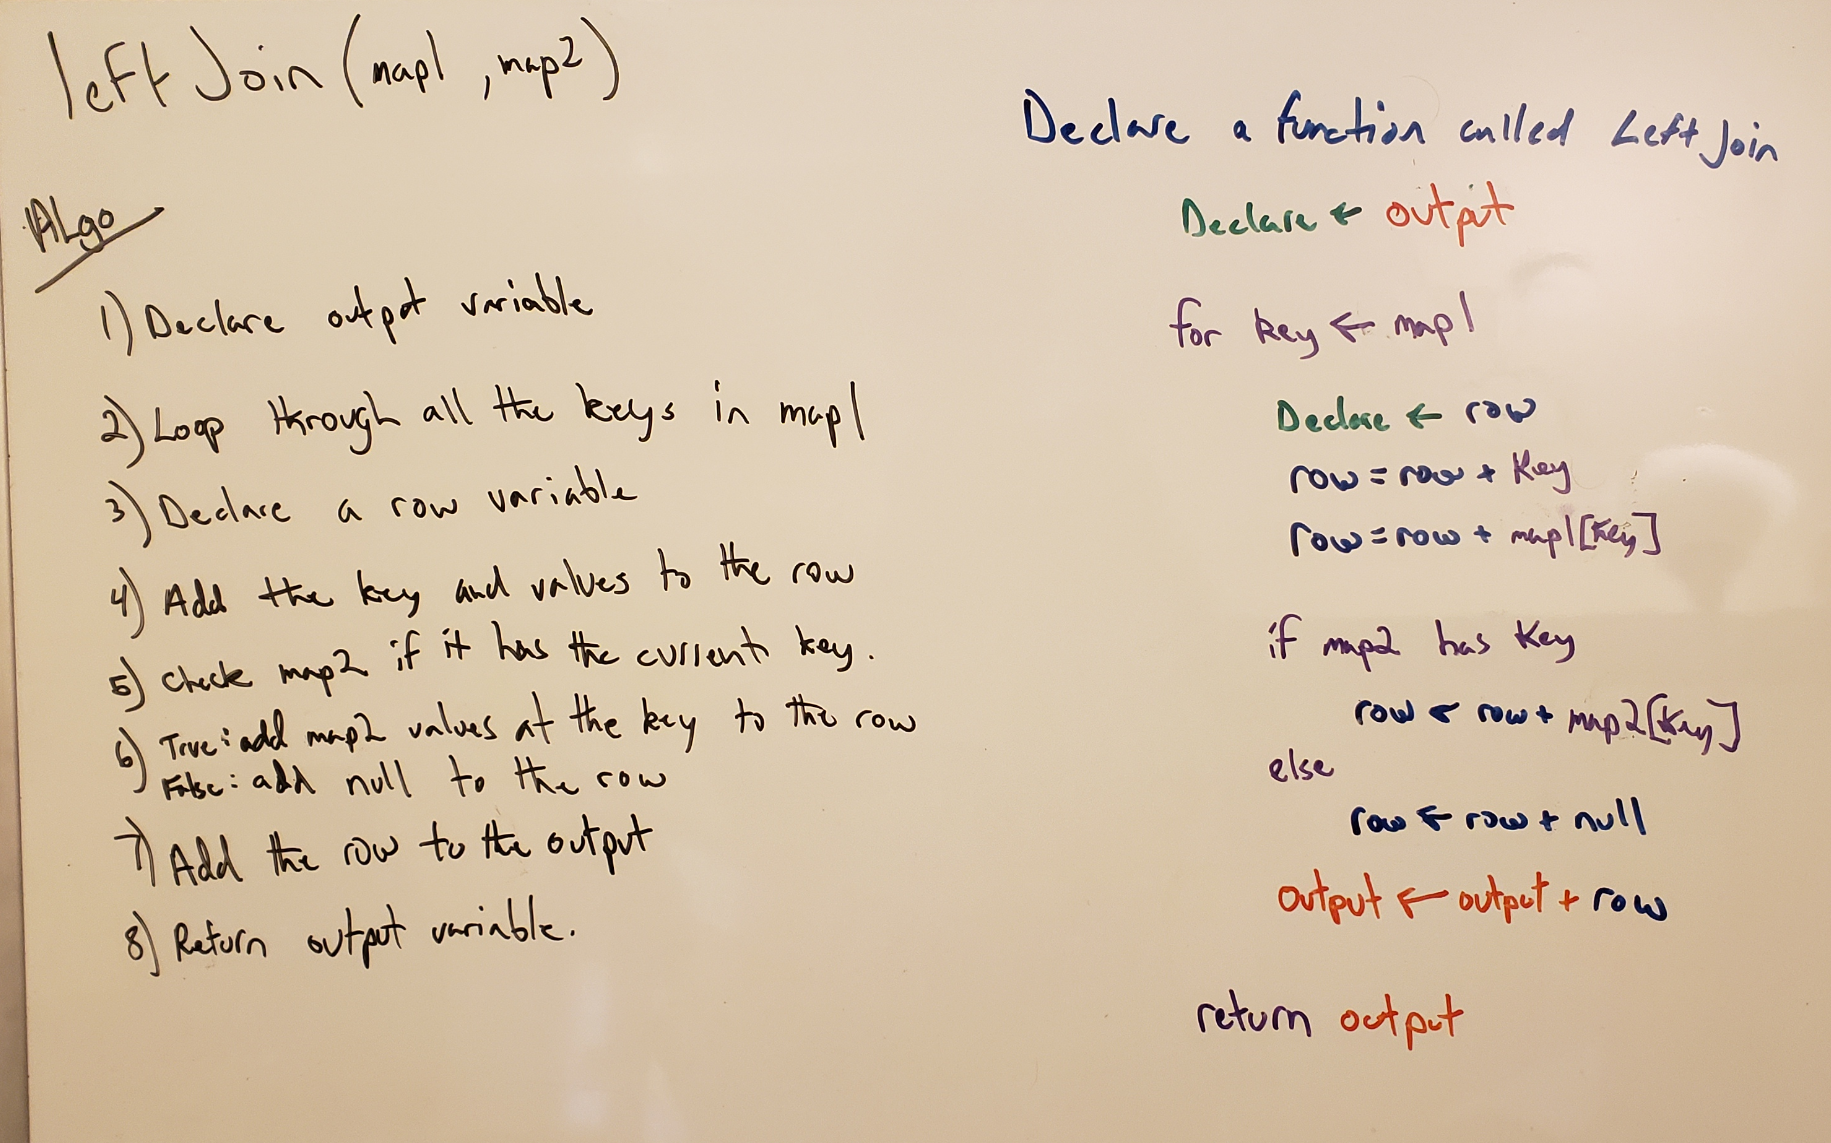 left Join (map1, map2)
ALgo
1) Declare output variable
2) Loop through all the keys in map1
3) Declare a row variable
4) Add the key and values to the row
5) check map2 if it has the current key.
6) True: add map2 values at the key to the row
False: add null to the row
7) Add the row to the output
8) Return output variable.
Declare a function called Left Join
Declare ← output
for key ← map1
Declare ← row
row = row + Key
row = row + map1[key]
if map2 has Key
row ← row + map2[key]
else
row ← row + null
output ← output + row
return output